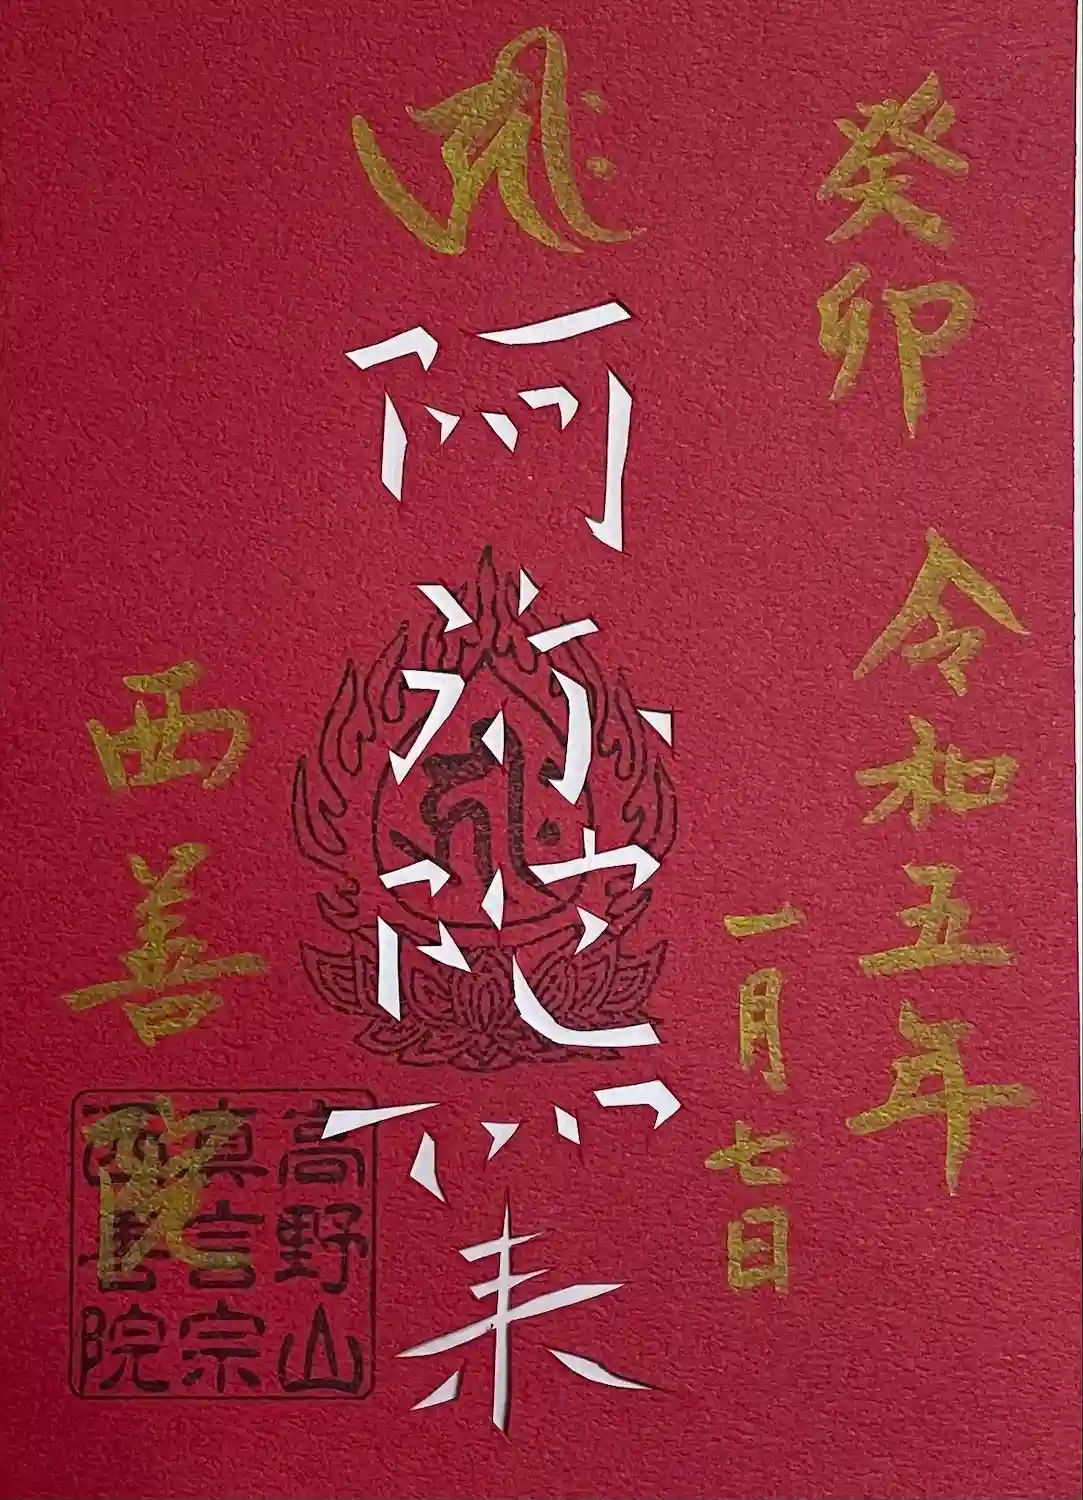 癸卯 令和五年
一月七日
𑖮𑖿𑖨𑖱𑖾
阿弥陀如来
𑖮𑖿𑖨𑖱𑖾
西善院
高野山
真言宗
西善院